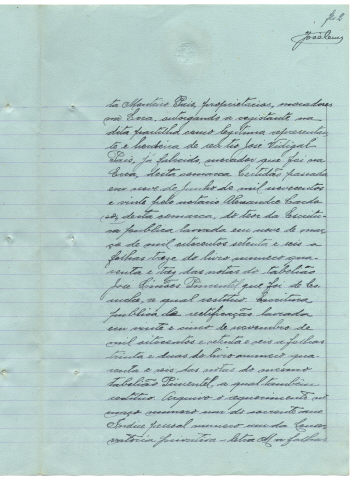 fl. 2
ta Monteiro Pais, proprietarios, moradores
na Erva, outorgando a registante na
dita partilha como legitima represen
te e herdeira de seu tio José
Pais, já falecido, morador que foi na
Erva, desta comarca. Certidão passada
em nove de Junho de mil novecentos
e vinte pelo notario Alexandre Cardo
so, desta comarca, do teor da Escritu
ra publica lavrada em nove de mar
ço de mil oitocentos setenta e seis a
folhas treze do livro numero qua
renta e tres das notas do tabelião
José Simões Pimentel, que foi de
a qual restitui. Escritura
publica de rectificação lavrada
em vinte e cinco de novembro de
mil oitocentos e setenta e seis a folhas
trinta e duas do livro numero qua
renta e seis das notas do mesmo
tabelião Pimentel, a qual tambem
restitui. Arquivo o requerimento no
maço numero um do corrente ano
Indice pessoal numero um da Conser
vatoria privativa - letra M a folhas